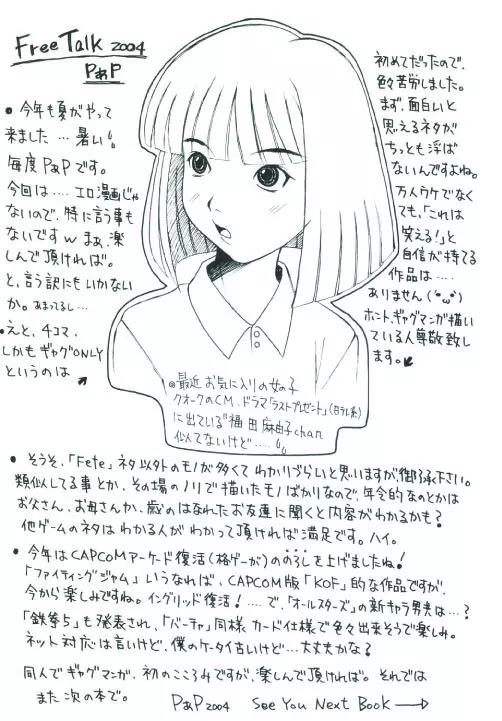 Free Talk 2004
PぁP
● 今年も夏がやって
来ました…暑い
毎度PぁPです。
今回は…. エロ漫画じゃ
ないので、特に言う事も
ないですw まぁ、楽
しんで頂ければ。
と、言う訳にもいかない
か。あまってるし…
●えと、4コマ、
しかもギャグONLY
というのは
初めてだったので、
色々苦労しました。
まず、面白いと
思えるネタが
ちっとも浮ば
ないんですよね。
万人ウケでなく
ても、「これは
笑える！」と
自信が持てる
作品は….
ありません(´・ω・)
ホント、ギャグマンガ描い
ている人尊敬致し
ます。
◎最近お気に入りの女の子
クオークのCM、ドラマ「ラストプレゼント」(日テレ系)
に出ている"福田麻由子chan
似てないけど…..
● そうそ、「Fete」ネタ以外のモノが多くてわかりづらいと思いますが、御了承下さい。
類似してる事とか、その場のノリで描いたモノばかりなので、年令的なのとかは
お父さん、お母さんか、歳のはなれたお友達に聞くと内容がわかるかも？
他ゲームのネタはわかる人がわかって頂ければ満足です。ハイ。
● 今年はCAPCOMアーケード復活(格ゲーが)ののろしを上げましたね！
「ファイティングジャム」いうなれば、CAPCOM版「KOF」的な作品ですが、
今から楽しみですね。イングリッド復活！….で、「オールスターズ」の新キャラ男共は…？
「鉄拳5」も発表され、「バーチャ」同様カード仕様で色々出来そうで楽しみ。
ネット対応は言いけど、僕のケータイ古いけど…大丈夫かな？
同人でギャグマンガ、初のこころみですが、楽しんで頂ければ。それでは
また次の本で。 PぁP 2004 See You Next Book →